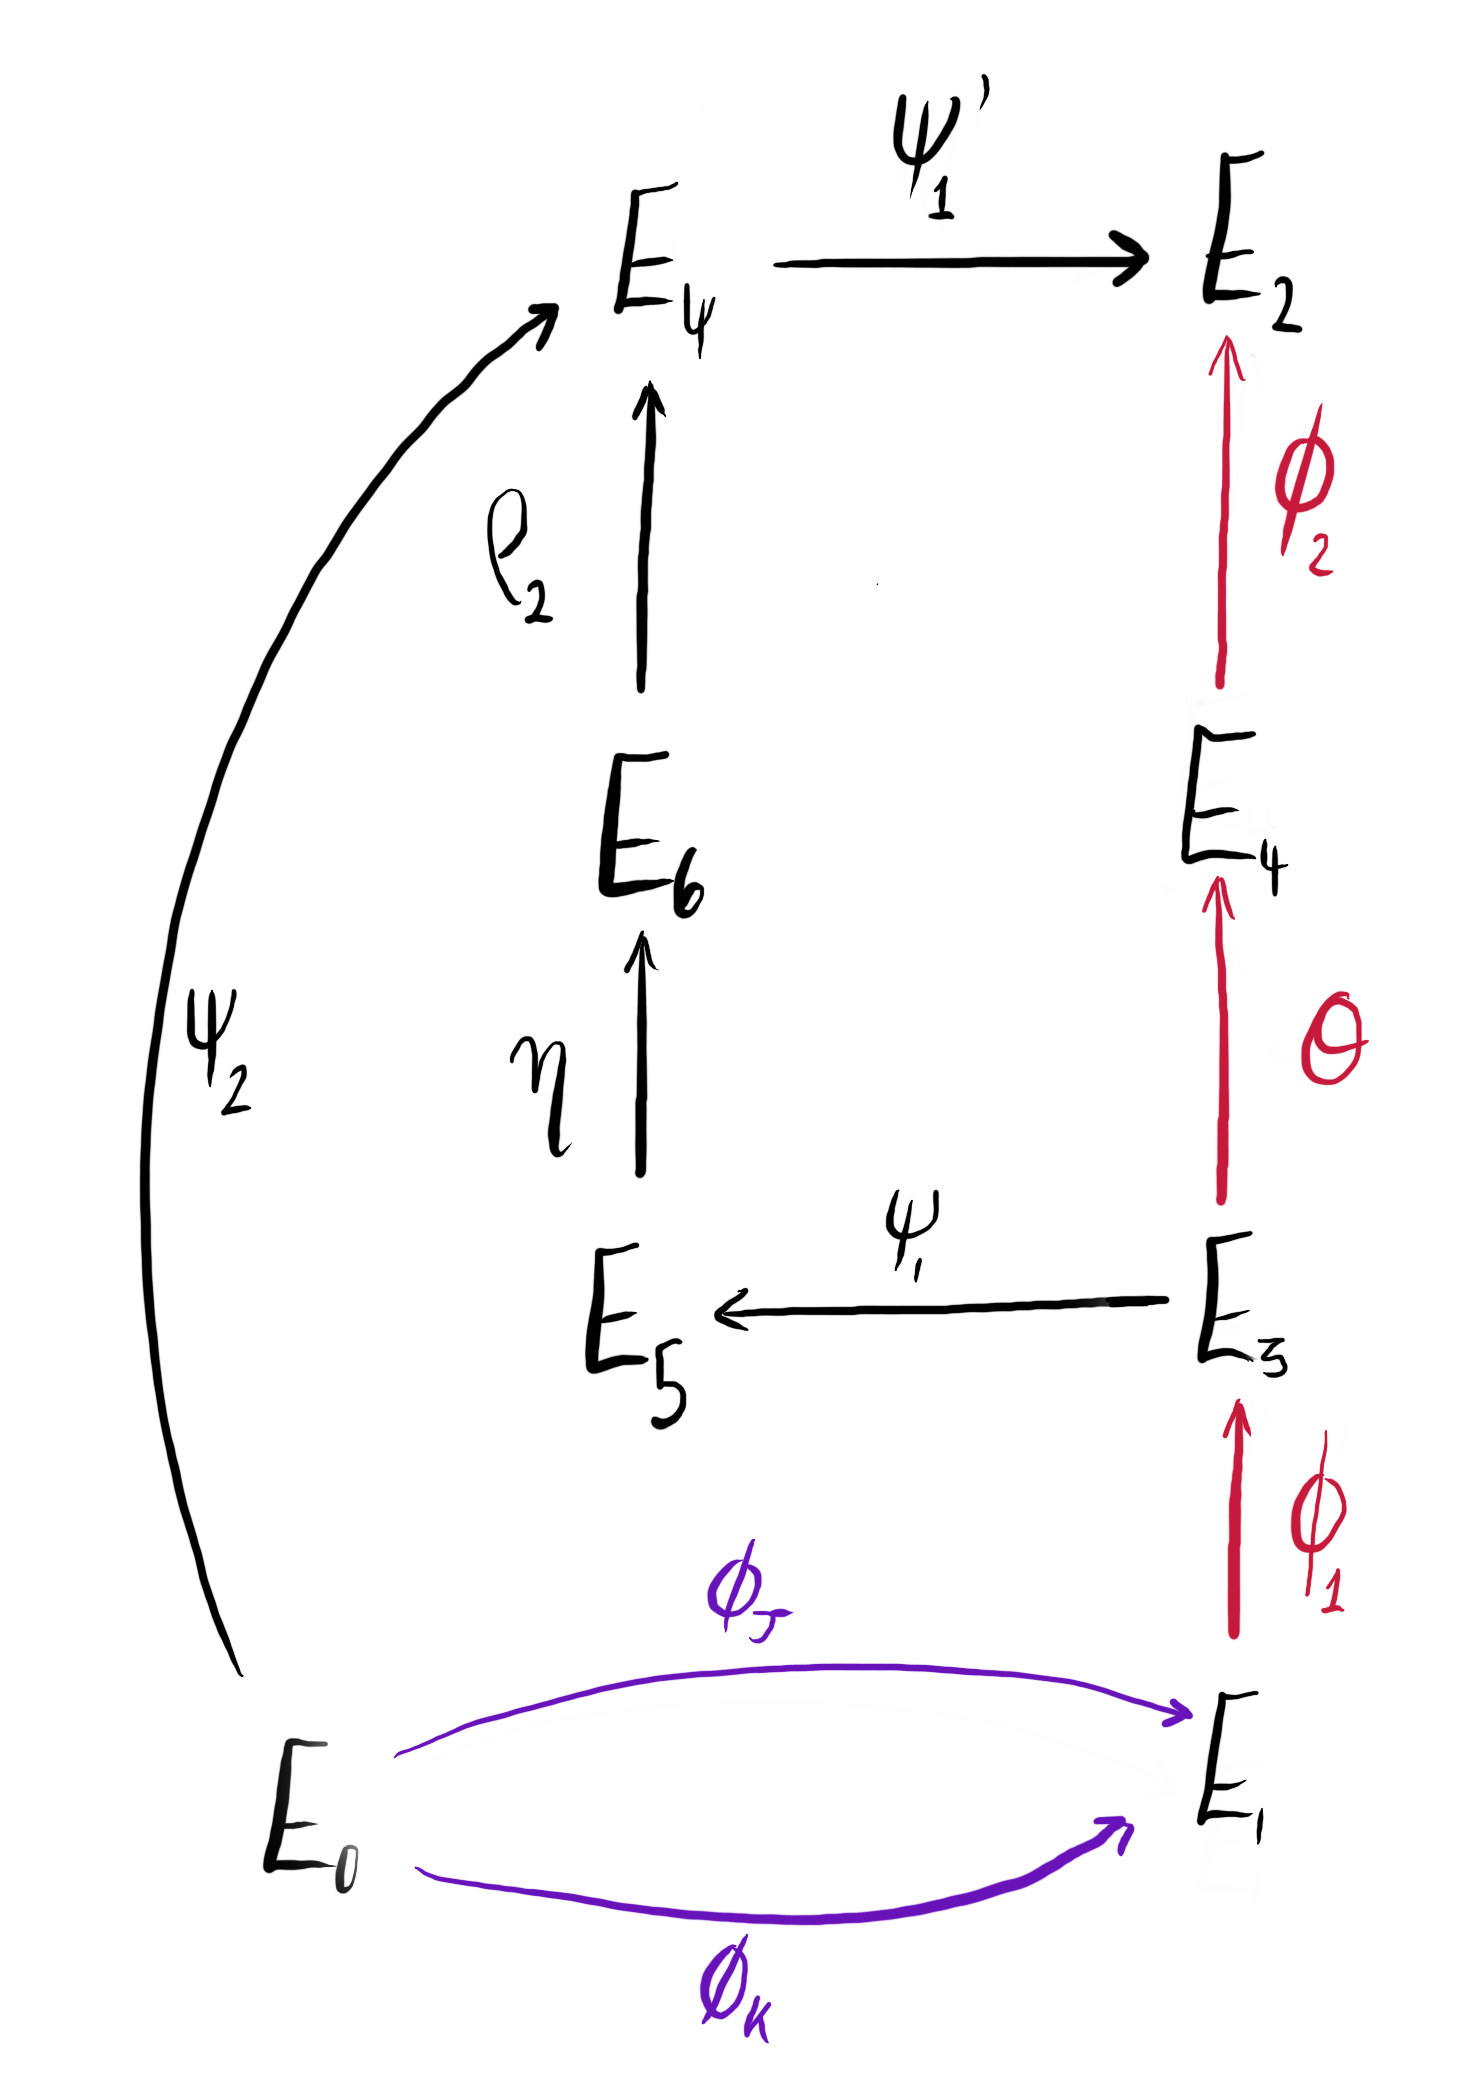 ψ'₁
E_ψ E₂
ρ₂ ϕ₂
E₆ E₄
ψ₂ η θ
ψ₁
E₅ E₃
ϕ_J ϕ₁
E₀ E₁
ϕ_K